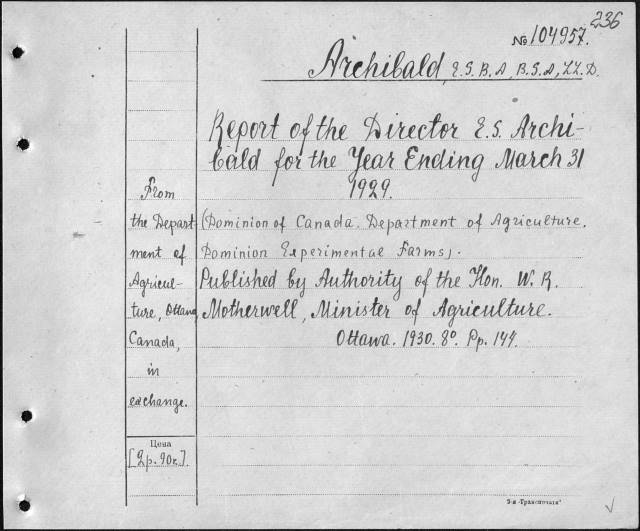 236
№ 104957.
Archibald, E.S. B.A, B.S.A, LL.D.
Report of the Director E.S. Archi-
bald for the Year Ending March 31
1929.
(Dominion of Canada. Department of Agriculture.
Dominion Experimental Farms).
Published by Authority of the Hon. W. R.
Motherwell, Minister of Agriculture.
Ottawa. 1930. 8°. Pp. 144.
From
the Depart-
ment of
Agricul-
ture, Ottawa,
Canada,
in
exchange.
Цена
[2р. 90к.].